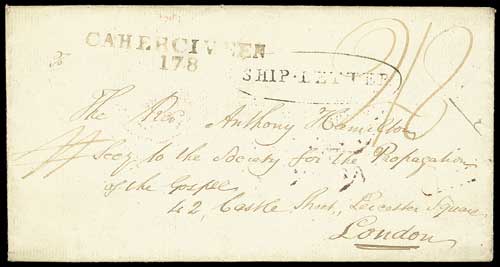 CAHERCIVEEN
178
SHIP·LETTER
The Rev. Anthony Hamilton
Secy. to the Society for the Propagation
of the Gospel
42, Castle Street, Leicester Square
London